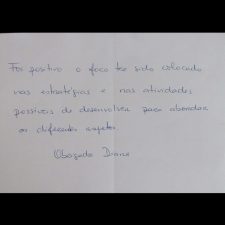 Foi positivo o foco ter sido colocado
nas estratégias e nas atividades
possíveis de desenvolver para abordar
os diferentes aspetos
Obrigada Diana